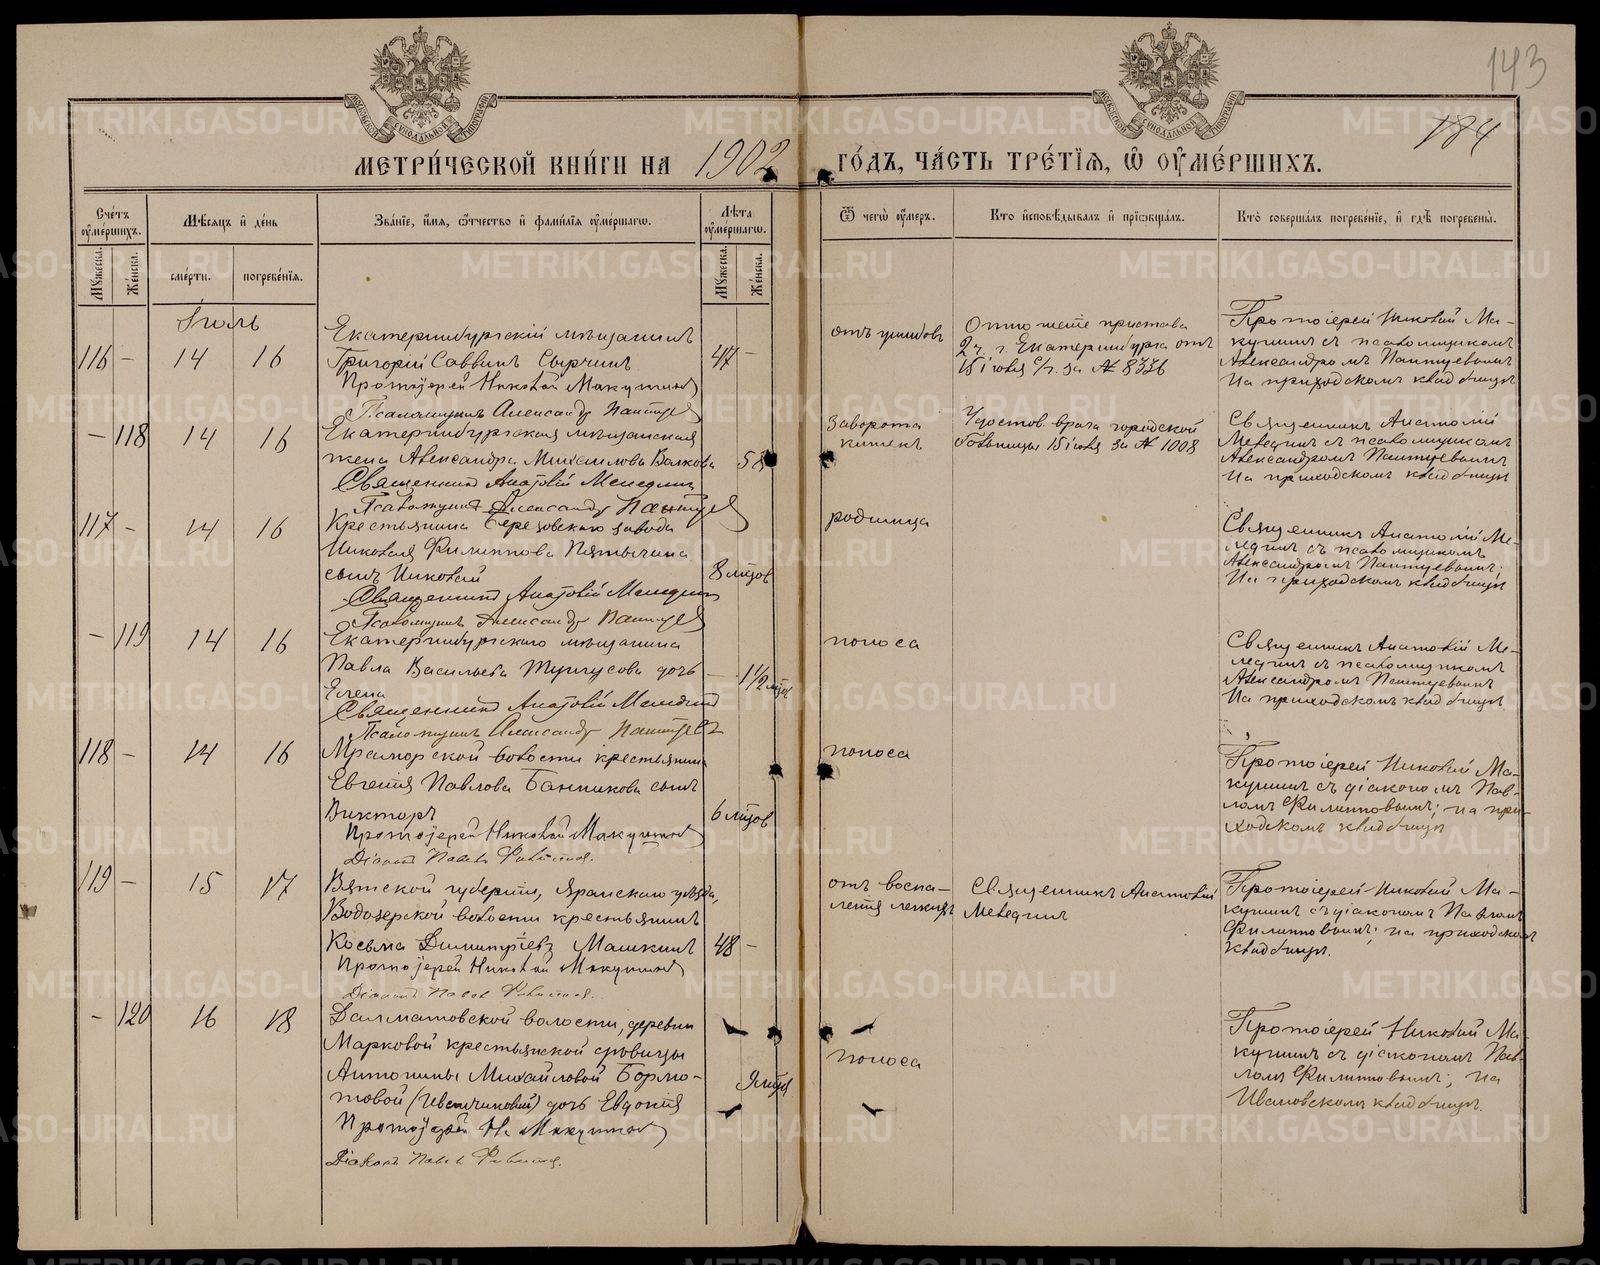 143
184
МЕТРИ́ЧЕСКОЙ КНИ́ГИ НА 1902 ГО́ДЪ, ЧА́СТЬ ТРЕ́ТІѦ, Ѡ ОУ҆МЕ́РШИХЪ.
Сче́тъ оу҆ме́ршихъ.
Мꙋжеска. Же́нска.
Мѣ́сѧцъ и҆ де́нь
сме́рти. погребе́нїѧ.
Зва́нїе, и҆́мѧ, ѻ҆́тчество и҆ фами́лїѧ оу҆ме́ршагѡ.
Лѣ́та оу҆ме́ршагѡ.
Мꙋжеска. Же́нска.
Ѿ чегѡ̀ оу҆́меръ.
Кто̀ и҆сповѣ́дывалъ и҆ прїѡбща́лъ.
Кто̀ соверша́лъ погребе́нїе, и҆ гдѣ̀ погребены̀.
Іюль
116 – 14 16
Екатеринбургскій мѣщанинъ
Григорій Саввинъ Сырчинъ
47 –
Протоіерей Николай Макушинъ
Псаломщикъ Александръ
отъ ушибовъ
Отношеніе пристава
2 ч. г. Екатеринбурга отъ
15 іюля с/г. за № 8376
Протоіерей Николай Ма-
кушинъ съ псаломщикомъ
Александромъ
На приходскомъ кладбищѣ
– 118 14 16
Екатеринбургская мѣщанская
жена Александра Михаилова Волкова
Священникъ Анатолій
Псаломщикъ Александръ
Заворота
кишекъ
Удостов. врача городской
больницы 15 іюля за № 1008
Священникъ Анатолій
съ псаломщикомъ
Александромъ
На приходскомъ кладбищѣ
117 – 14 16
Крестьянина Березовскаго завода
Николая Филиппова
сынъ Николай
8 мѣсяцов
Священникъ Анатолій
Псаломщикъ Александръ
родимца
Священникъ Анатолій
съ псаломщикомъ
Александромъ
На приходскомъ кладбищѣ
– 119 14 16
Екатеринбургскаго мѣщанина
Павла Васильева Тунгусова дочь
Елена
– 1 1/2
Священникъ Анатолій
Псаломщикъ Александръ
поноса
Священникъ Анатолій
съ псаломщикомъ
Александромъ
На приходскомъ кладбищѣ
118 – 14 16
Мраморской волости крестьянина
Евгенія Павлова Банникова сынъ
Викторъ
6 мѣсяцов
Протоіерей Николай Макушинъ
Діаконъ Павелъ
поноса
Протоіерей Николай Ма-
кушинъ съ діакономъ Пав-
ломъ Филипповымъ; на при-
ходскомъ кладбищѣ
119 – 15 17
Вятской губерніи, Яранскаго уѣзда,
Водозерской волости крестьянинъ
Косьма Димитріевъ Машкинъ
48 –
Протоіерей Николай Макушинъ
Діаконъ Павелъ
отъ воспа-
ленія легкихъ
Священникъ Анатолій
Протоіерей Николай Ма-
кушинъ съ діакономъ Павломъ
Филипповымъ; на приходском
кладбищѣ.
– 120 16 18
Далматовской волости, деревни
Марковой крестьянской дѣвицы
Антонины Михайловой Бормо-
товой дочь Евдокія
Протоіерей Н. Макушинъ
Діаконъ Павелъ
поноса
Протоіерей Николай Ма-
кушинъ съ діакономъ Пав-
ломъ Филипповымъ; на
Ивановскомъ кладбищѣ.
METRIKI.GASO-URAL.RU